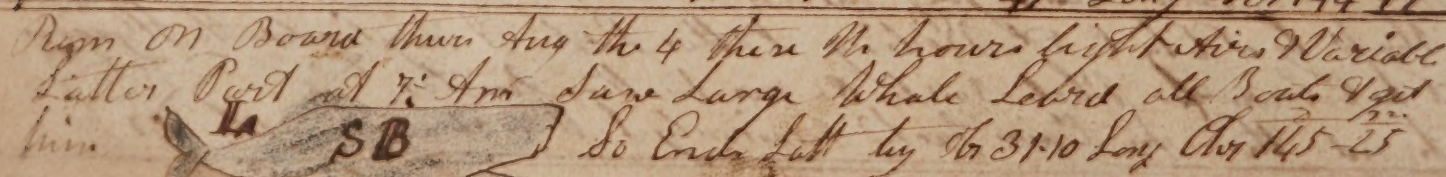 Rem on Board thurs Aug the 4 these 24 hours light Airs & Variabl
Latter Part at 7: Am Saw Large Whale Leard all Boats & got
him L SB So Ends Latt by Ob 31-10 Long Chr 145-25